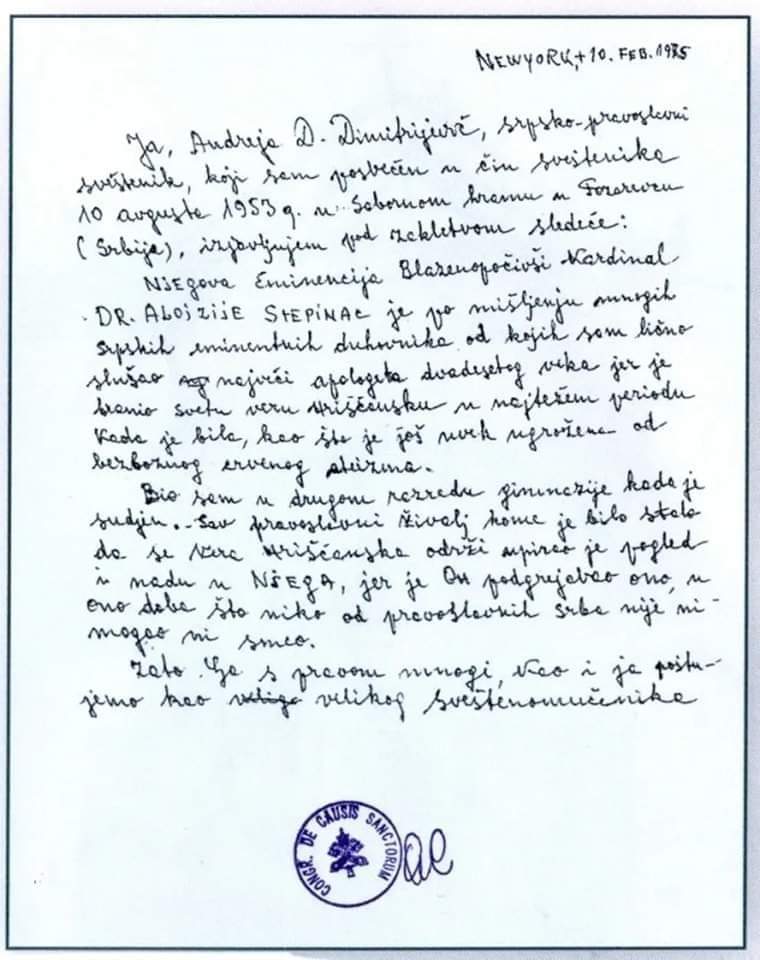 NEWYORK, +10. FEB. 1985
Ja, Andreja D. Dimitrijević, srpsko-pravoslavni
sveštenik, koji sam posvećen u čin sveštenika
10 avgusta 1953 g. u Sabornom hramu u Požarevcu
(Srbija), izjavljujem pod zakletvom sledeće:
NJEGOVA Eminencija Blaženopočivši Kardinal
DR. ALOJZIJE STEPINAC je po mišljenju mnogih
srpskih eminentnih duhovnika od kojih sam lično
slušao najveći apologeta dvadesetog veka jer je
branio svetu veru Hrišćansku u najtežem periodu
kada je bila, kao što je još uvek ugrožena od
bezbožnog crvenog ateizma.
Bio sam u drugom razredu gimnazije kada je
sudjen. Sav pravoslavni živalj kome je bilo stalo
da se Vera Hrišćanska održi upirao je pogled
i nadu u NJEGA, jer je On podgrejavao ono, u
ono doba što niko od pravoslavnih Srba nije ni-
mogao ni smeo.
Zato Ga s pravom mnogi, kao i ja poštu-
jemo kao velikog sveštenomučenika
CONGR. DE CAUSIS SANCTORUM